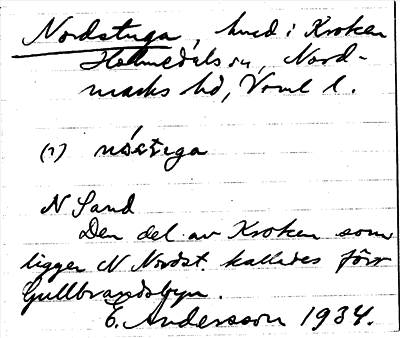 Nordstuga, hmed i Kroken
Holmedals sn, Nord-
marks hd, Vrml l.
(1) nåstega
N Sand
Den del av Kroken som
ligger N Nordst. kallades förr
Gullbrandsbyn.
E. Andersson 1934.